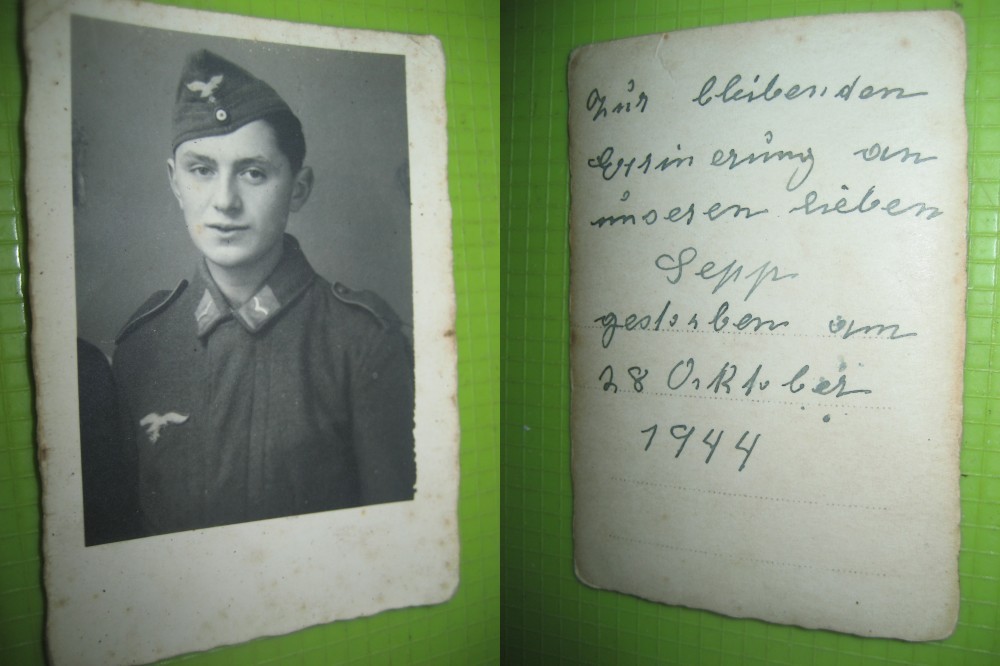 Zur bleibenden
Errinerung an
unseren lieben
Sepp
gestorben am
28 Oktober
1944